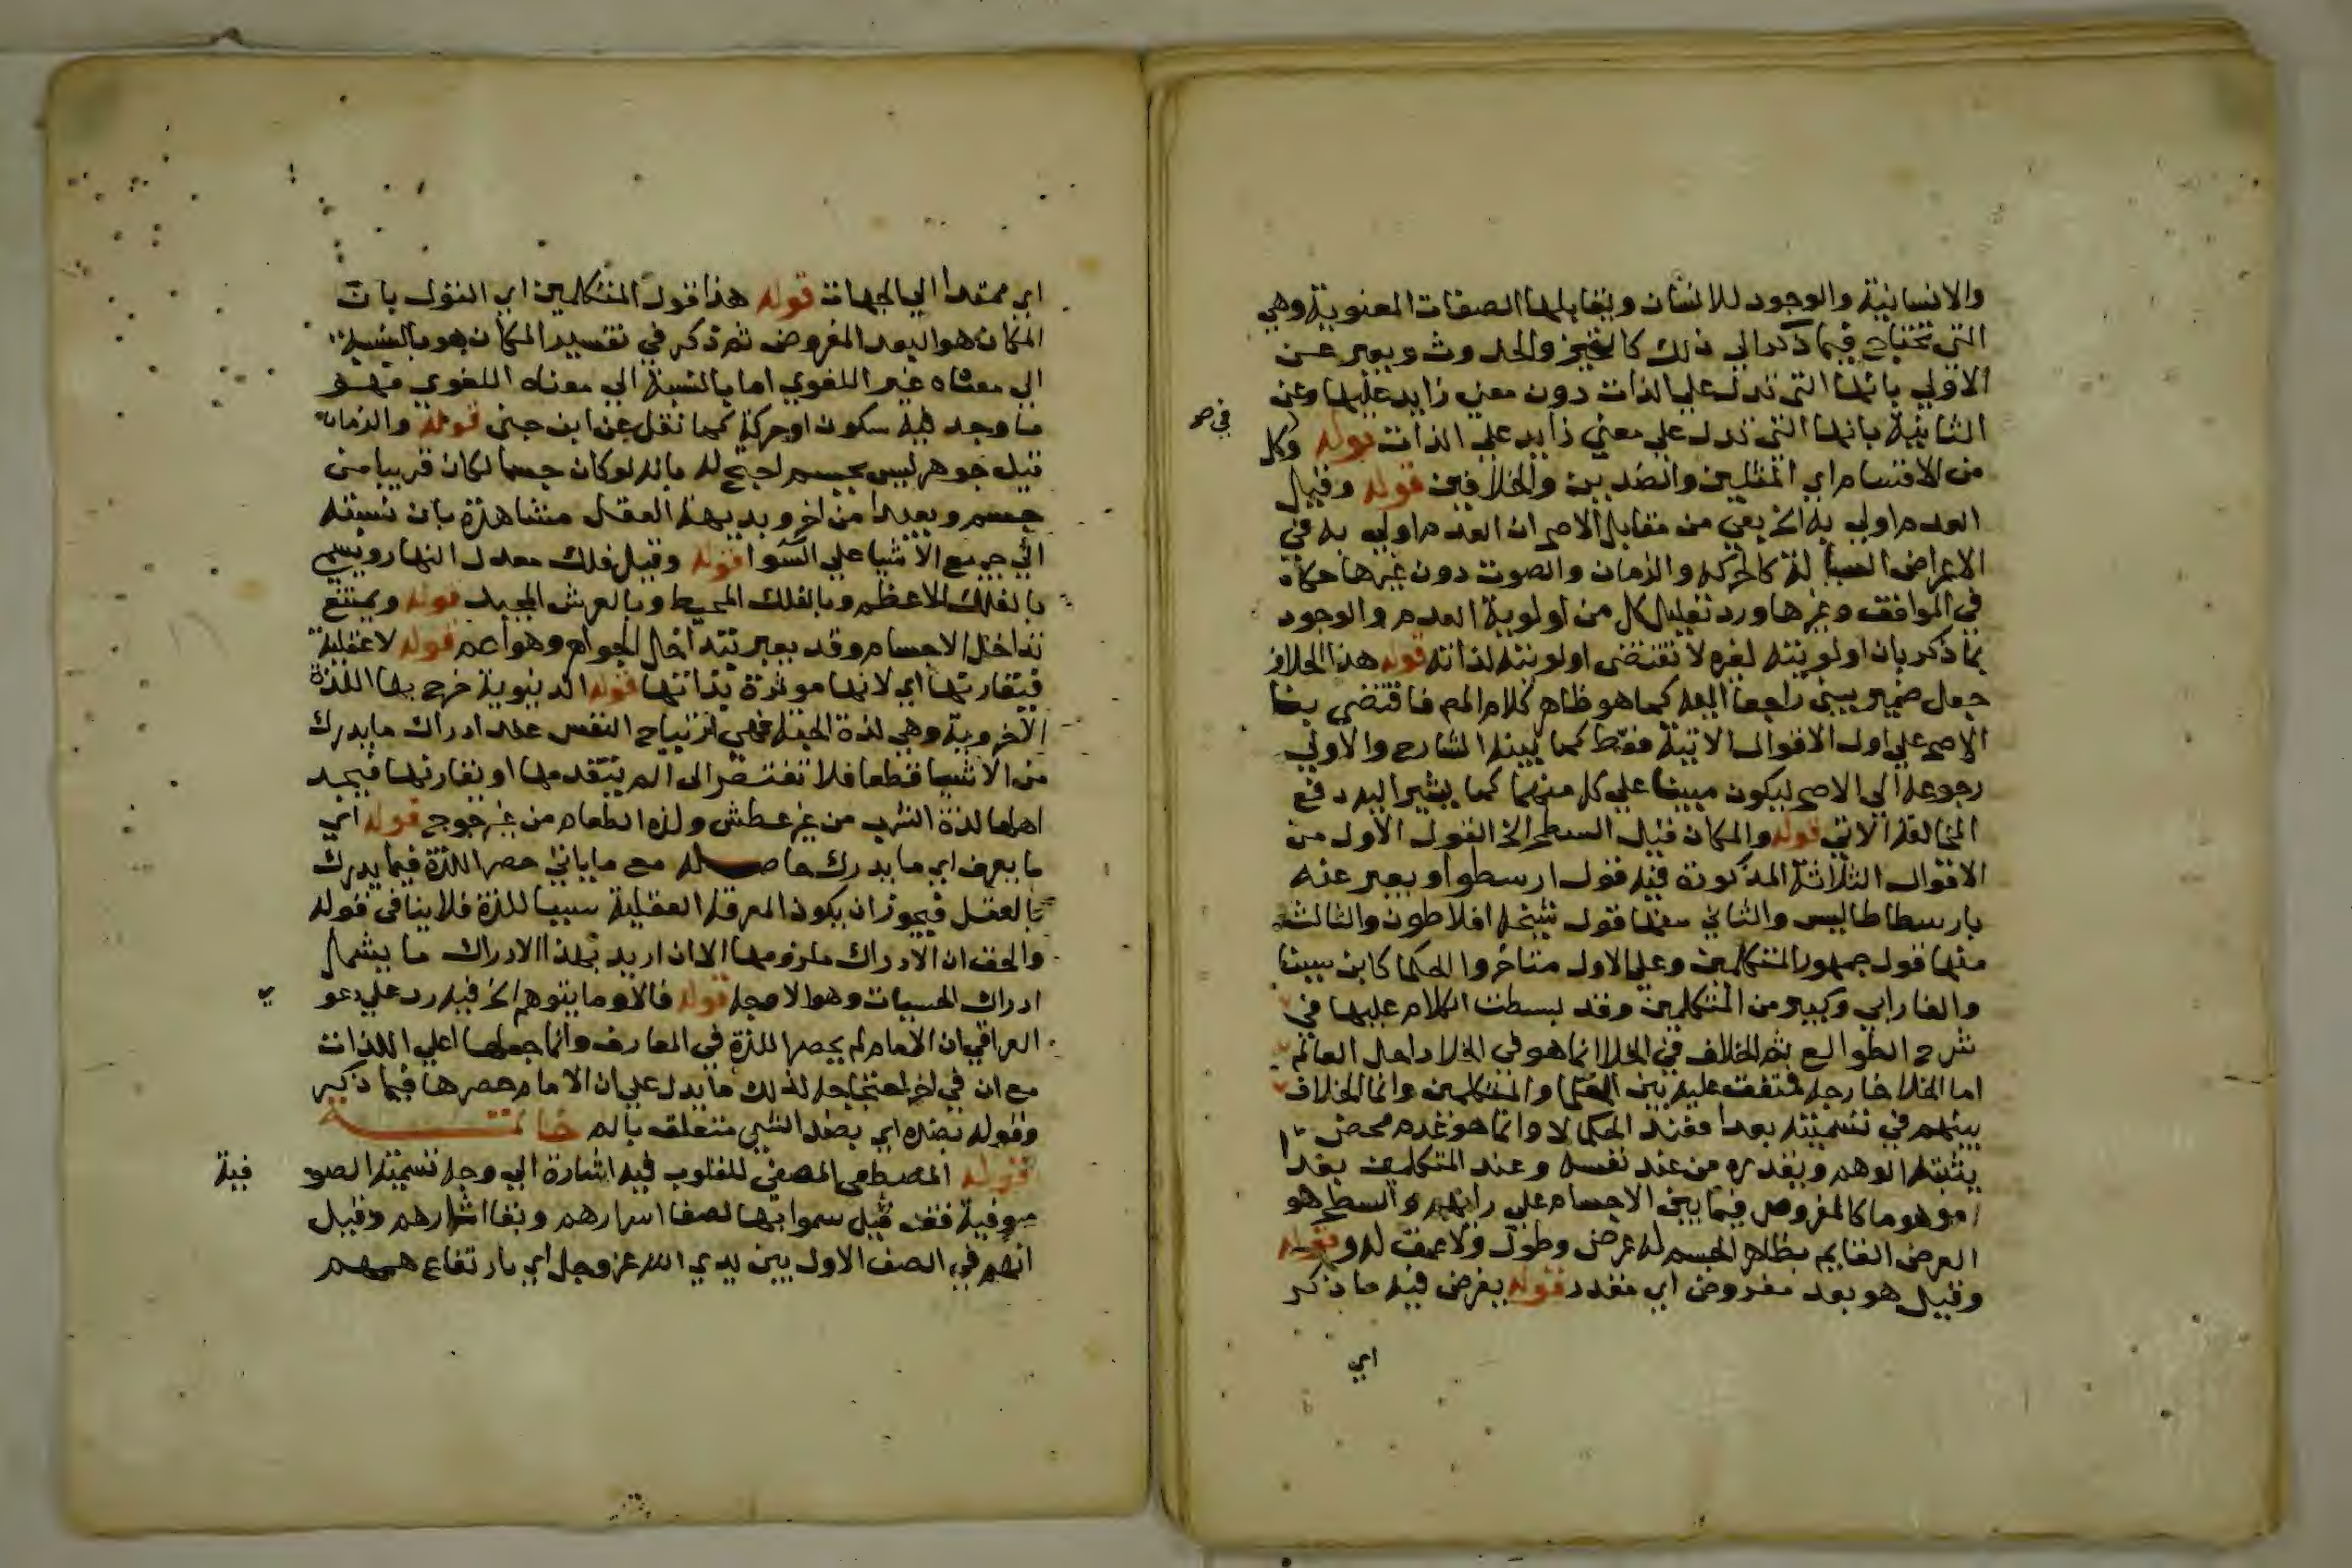 والانسانية والوجود للانسان ويقابلها الصفات المعنوية وهي
التي تحتاج فيما ذكر الي ذلك كالتحيز والحدوث ويعبر عن
الاولي بانها التي تدل علي الذات دون معني زايد عليها وعن
الثانية بانها التي تدل علي معني زايد علي الذات قوله وكل
من الاقسام اي المثلين والضدين والخلافين قوله وقيل
العدم اولي به الخ يعني من مقابل الاصح ان العدم اولي به في
الاعراض السيالة كالحركة والزمان والصوت دون غيرها حكاه
في المواقف وغيرها ورد تعليل كل من اولوية العدم والوجود
بما ذكر بان اولويته لغيره لا تقتضي اولويته لذاته قوله هذا الخلاف
جعل ضمير يبني راجعا اليه كما هو ظاهر كلام المص فاقتضي بنا
الاصح علي اول الاقوال الاتية فقط كما بينه الشارح والاولي
رجوعه الي الاصح ليكون مبينا علي كل منهما كما يشير اليه دفع
المخالفة الاتي قوله والمكان قيل السطح الخ القول الاول من
الاقوال الثلاثة المذكورة فيه قول ارسطو او يعبر عنه
بارسطاطاليس والثاني منها قول شيخه افلاطون والثالث
منها قول جمهور المتكلمين وعلي الاول متاخروا الحكما كابن سينا
والفارابي وكثير من المتكلمين وقد بسطت الكلام عليها في
شرح الطوالع ثم الخلاف في الخلا انما هو في الخلا داخل العالم
اما الخلا خارجه فمتفق عليه بين الحكما والمتكلمين وانما الخلاف
بينهم في تسميته بعدا فعند الحكما لا وانما هو عدم محض
يثبته الوهم ويقدره من عند نفسه وعند المتكلمين بعدا
موهوما كالمفروض فيما بين الاجسام علي رايهم والسطح هو
العرض القايم بظاهر الجسم له عرض وطول ولا عمق له وقوله
وقيل هو بعد مفروض اي مقدر قوله يفرض فيه ما ذكر
اي
اي ممتدا الي الجهات قوله هذا قول المتكلمين اي القول بان
المكان هو البعد المفروض ثم ذكر في تفسير المكان هو بالنسبة
الي معناه غير اللغوي اما بالنسبة الي معناه اللغوي فهو
ما وجد فيه سكون او حركة كما نقل عن ابن جني قوله والزمان
قيل جوهر ليس بجسم احتج له بانه لو كان جسما لكان قريبا من
جسم وبعيدا من اخر وبديهة العقل مشاهدة بان نسبته
الي جميع الاشيا علي السوا قوله وقيل فلك معدل النهار ويسمي
بالفلك الاعظم وبالفلك المحيط وبالعرش المجيد قوله ويمتنع
تداخل الاجسام وقد يعبر بتداخل الجواهر وهو اعم قوله لا عقلية
فيقارنها اي لانها موثرة بذاتها قوله الدنيوية خرج بها اللذة
الاخروية وهي لذة الجنة فهي ارتياح النفس عند ادراك ما يدرك
من الاشيا قطعا فلا تفتقر الي الم يتقدمها او يقارنها فيجد
اهلها لذة الشرب من غير عطش ولذة الطعام من غير جوع قوله اي
ما يعرف اي ما يدرك حاصله مع ما ياتي حصر اللذة فيما يدرك
بالعقل فيجوز ان يكون المعرفة العقلية سببا للذة فلا ينافي قوله
والحق ان الادراك ملزومها الا ان اريد بهذا الادراك ما يشمل
ادراك الحسيات وهو الاوجه قوله فالاو ما يتوهم الخ فيه رد علي دعو
ي
العراقي ان الامام لم يحصر اللذة في المعارف وانما جعلها اعلي اللذات
مع ان في اخر احتجاجه لذلك ما يدل علي ان الامام حصرها فيما ذكر
وقوله بضده اي بضد الشي متعلق بالم خاتمة
قوله المصطفي المصفي للقلوب فيه اشارة الي وجه تسميته الصو
فية
صوفية فقد قيل سموا بها لصفا اسرارهم ونقا اثارهم وقيل
انهم في الصف الاول بين يدي الله عز وجل اي بارتفاع هممهم